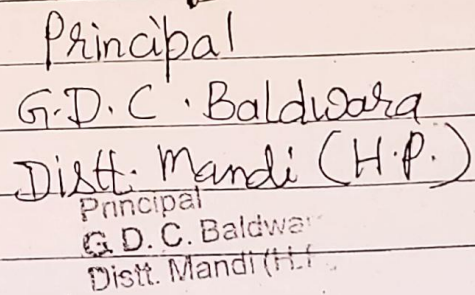 Principal
G.D.C. Baldwara
Distt. Mandi (H.P.)
Principal
G. D. C. Baldwar
Distt. Mandi (H.P